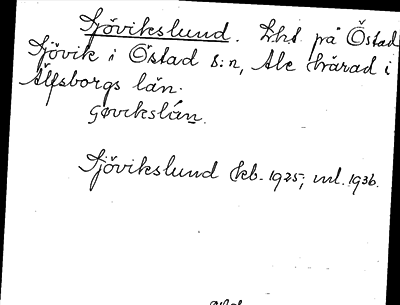 Sjövikslund. Lht på Östad
Sjövik i Östad s:n, Ale härad i
Älfsborgs län.
Sjövikslund kb. 1925; ml. 1936.